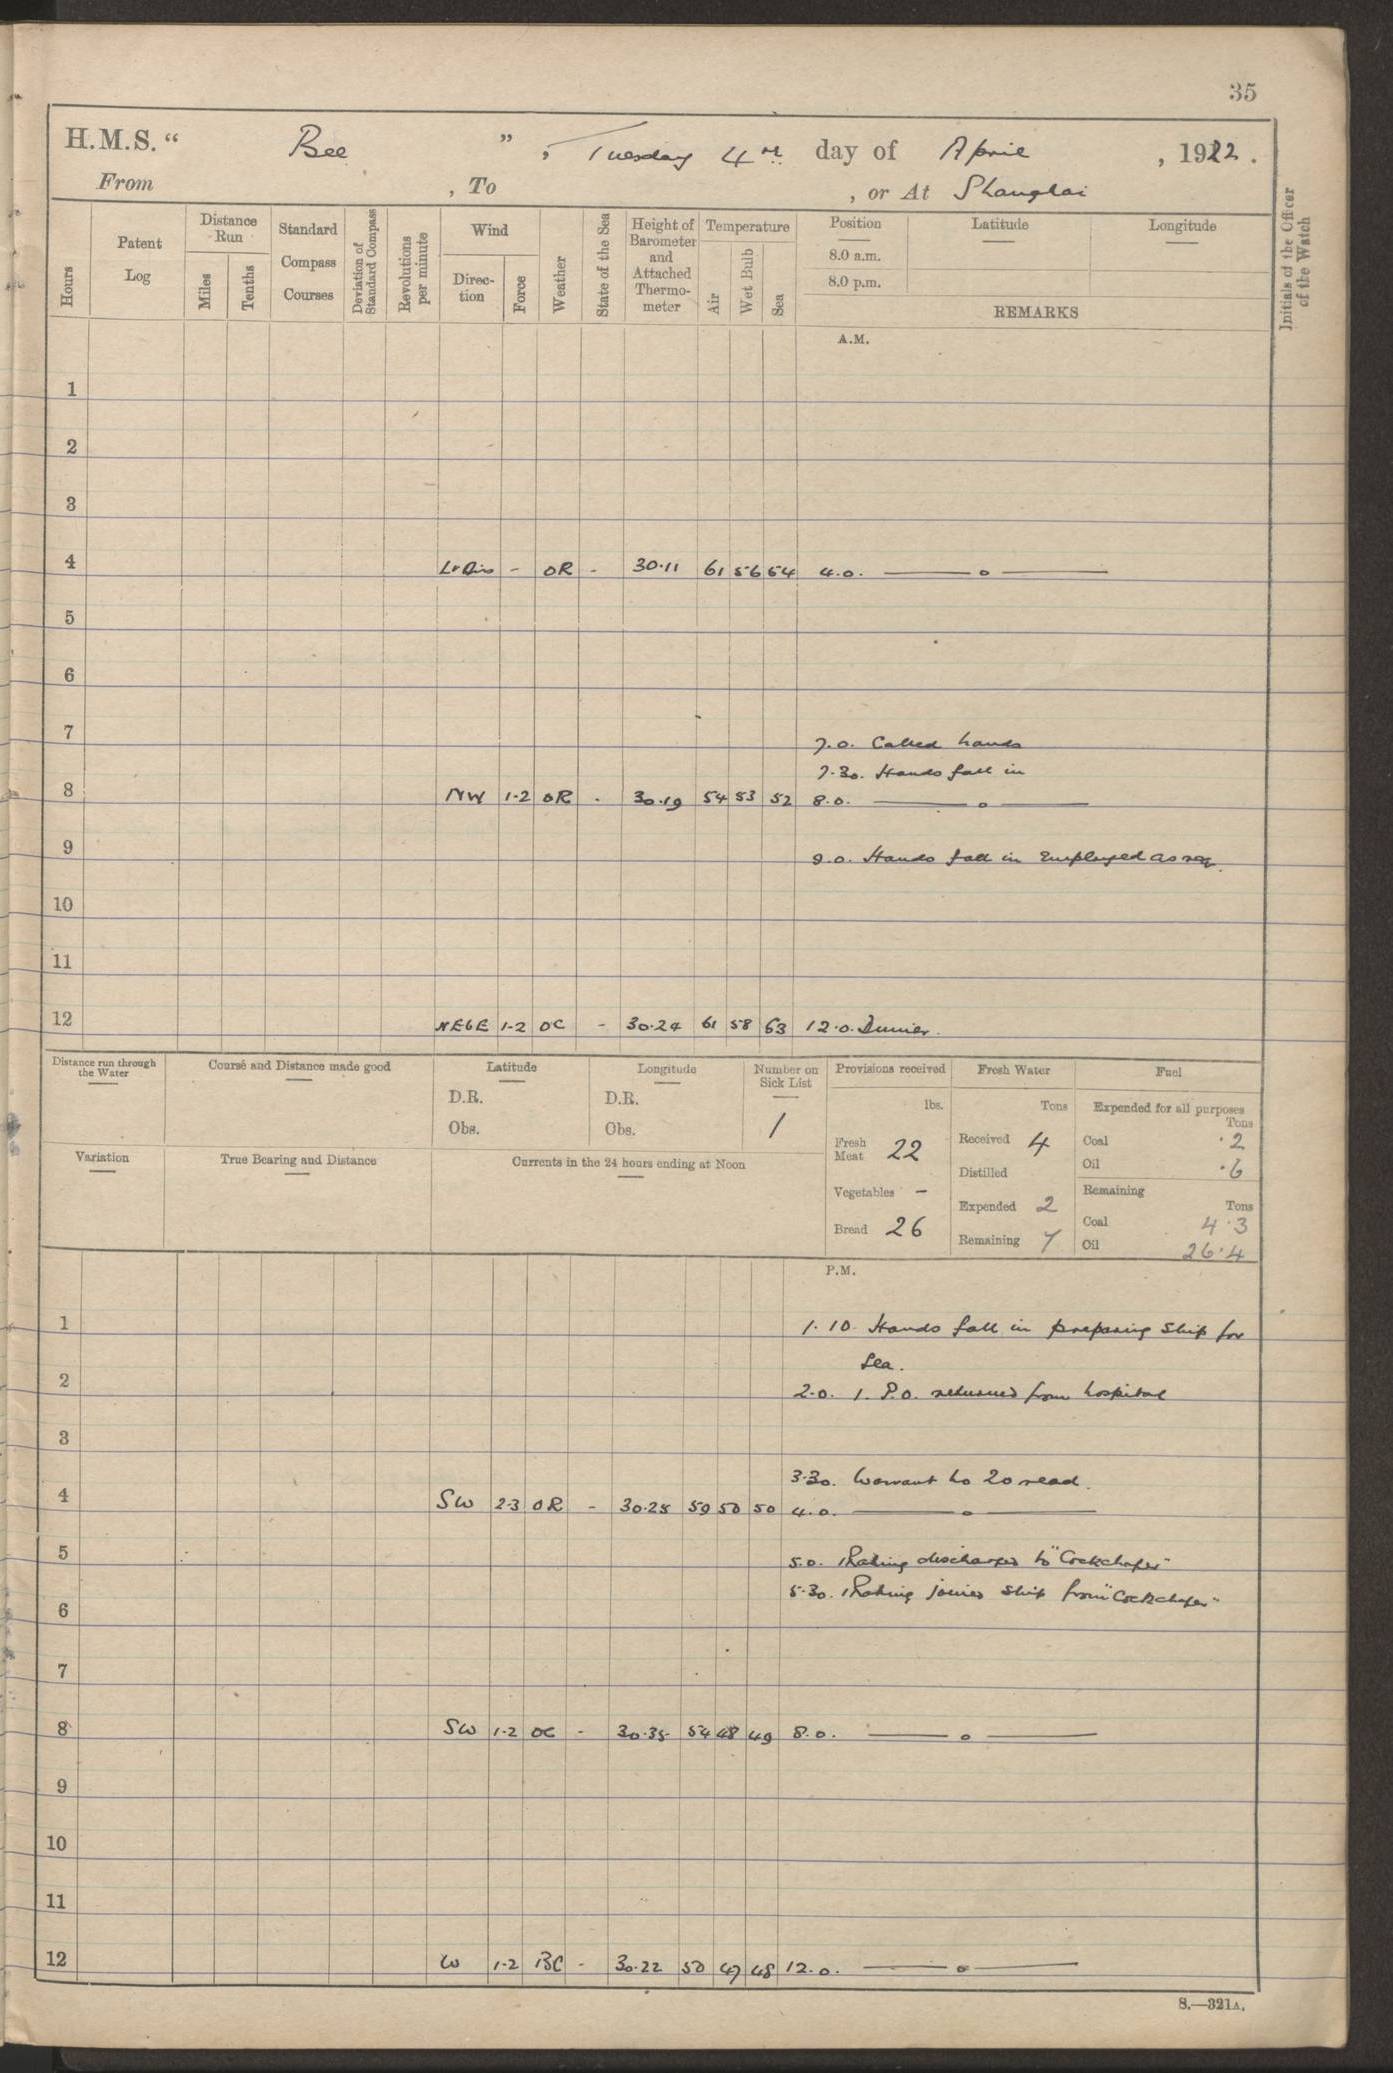 35
H.M.S. " Bee ", Tuesday 4th day of April, 1922.
From , To , or At Shanghai
Hours
Patent Log
Distance Run
Miles
Tenths
Standard Compass Courses
Deviation of Standard Compass
Revolutions per minute
Wind
Direction
Force
Weather
State of the Sea
Height of Barometer and Attached Thermometer
Temperature
Air
Wet Bulb
Sea
Position
Latitude
Longitude
8.0 a.m.
8.0 p.m.
REMARKS
Initials of the Officer of the Watch
A.M.
1
2
3
4 Lt Airs - OR - 30.11 61 56 54 4.0. — o —
5
6
7 7.0. Called hands
7.30. Hands fall in
8 NW 1-2 OR - 30.19 54 53 52 8.0. — o —
9 9.0. Hands fall in Employed as req.
10
11
12 NEbE 1-2 OC - 30.24 61 58 53 12.0. Dinner.
Distance run through the Water
Course and Distance made good
Latitude
D.R.
Obs.
Longitude
D.R.
Obs.
Number on Sick List
1
Provisions received
lbs.
Fresh Meat 22
Vegetables -
Bread 26
Fresh Water
Tons
Received 4
Distilled
Expended 2
Remaining 7
Fuel
Expended for all purposes
Tons
Coal .2
Oil .6
Remaining
Tons
Coal 4.3
Oil 26.4
Variation
True Bearing and Distance
Currents in the 24 hours ending at Noon
P.M.
1 1.10. Hands fall in preparing Ship for
Sea.
2 2.0. 1. P.O. returned from hospital
3
3.30. Warrant No 20 read.
4 SW 2-3 OR - 30.25 59 50 50 4.0. — o —
5 5.0. 1 Rating discharged to "Cockchafer"
5.30. 1 Rating joined Ship from "Cockchafer"
6
7
8 SW 1-2 OC - 30.35 54 48 49 8.0. — o —
9
10
11
12 W 1-2 BC - 30.22 50 47 48 12.0. — o —
S.—321A.